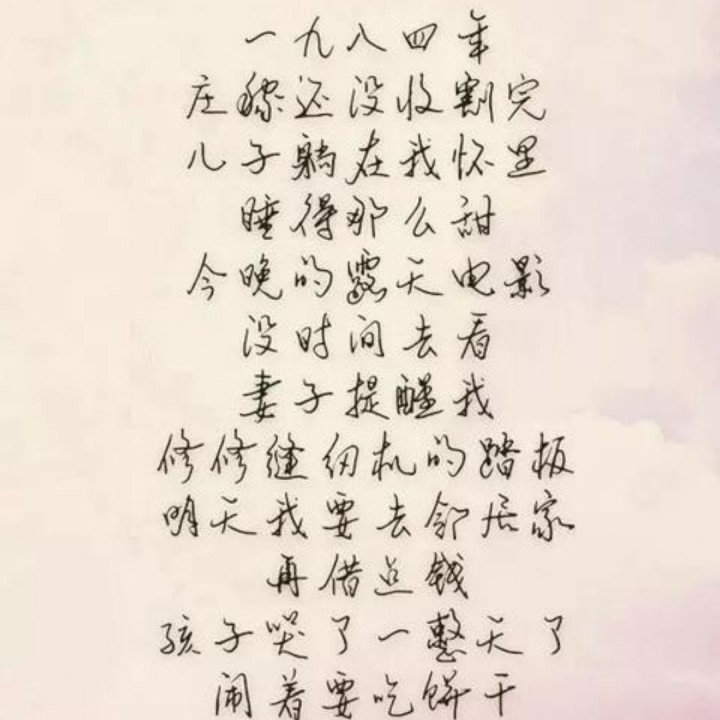 一九八四年
庄稼还没收割完
儿子躺在我怀里
睡得那么甜
今晚的露天电影
没时间去看
妻子提醒我
修修缝纫机的踏板
明天我要去邻居家
再借点钱
孩子哭了一整天了
闹着要吃饼干